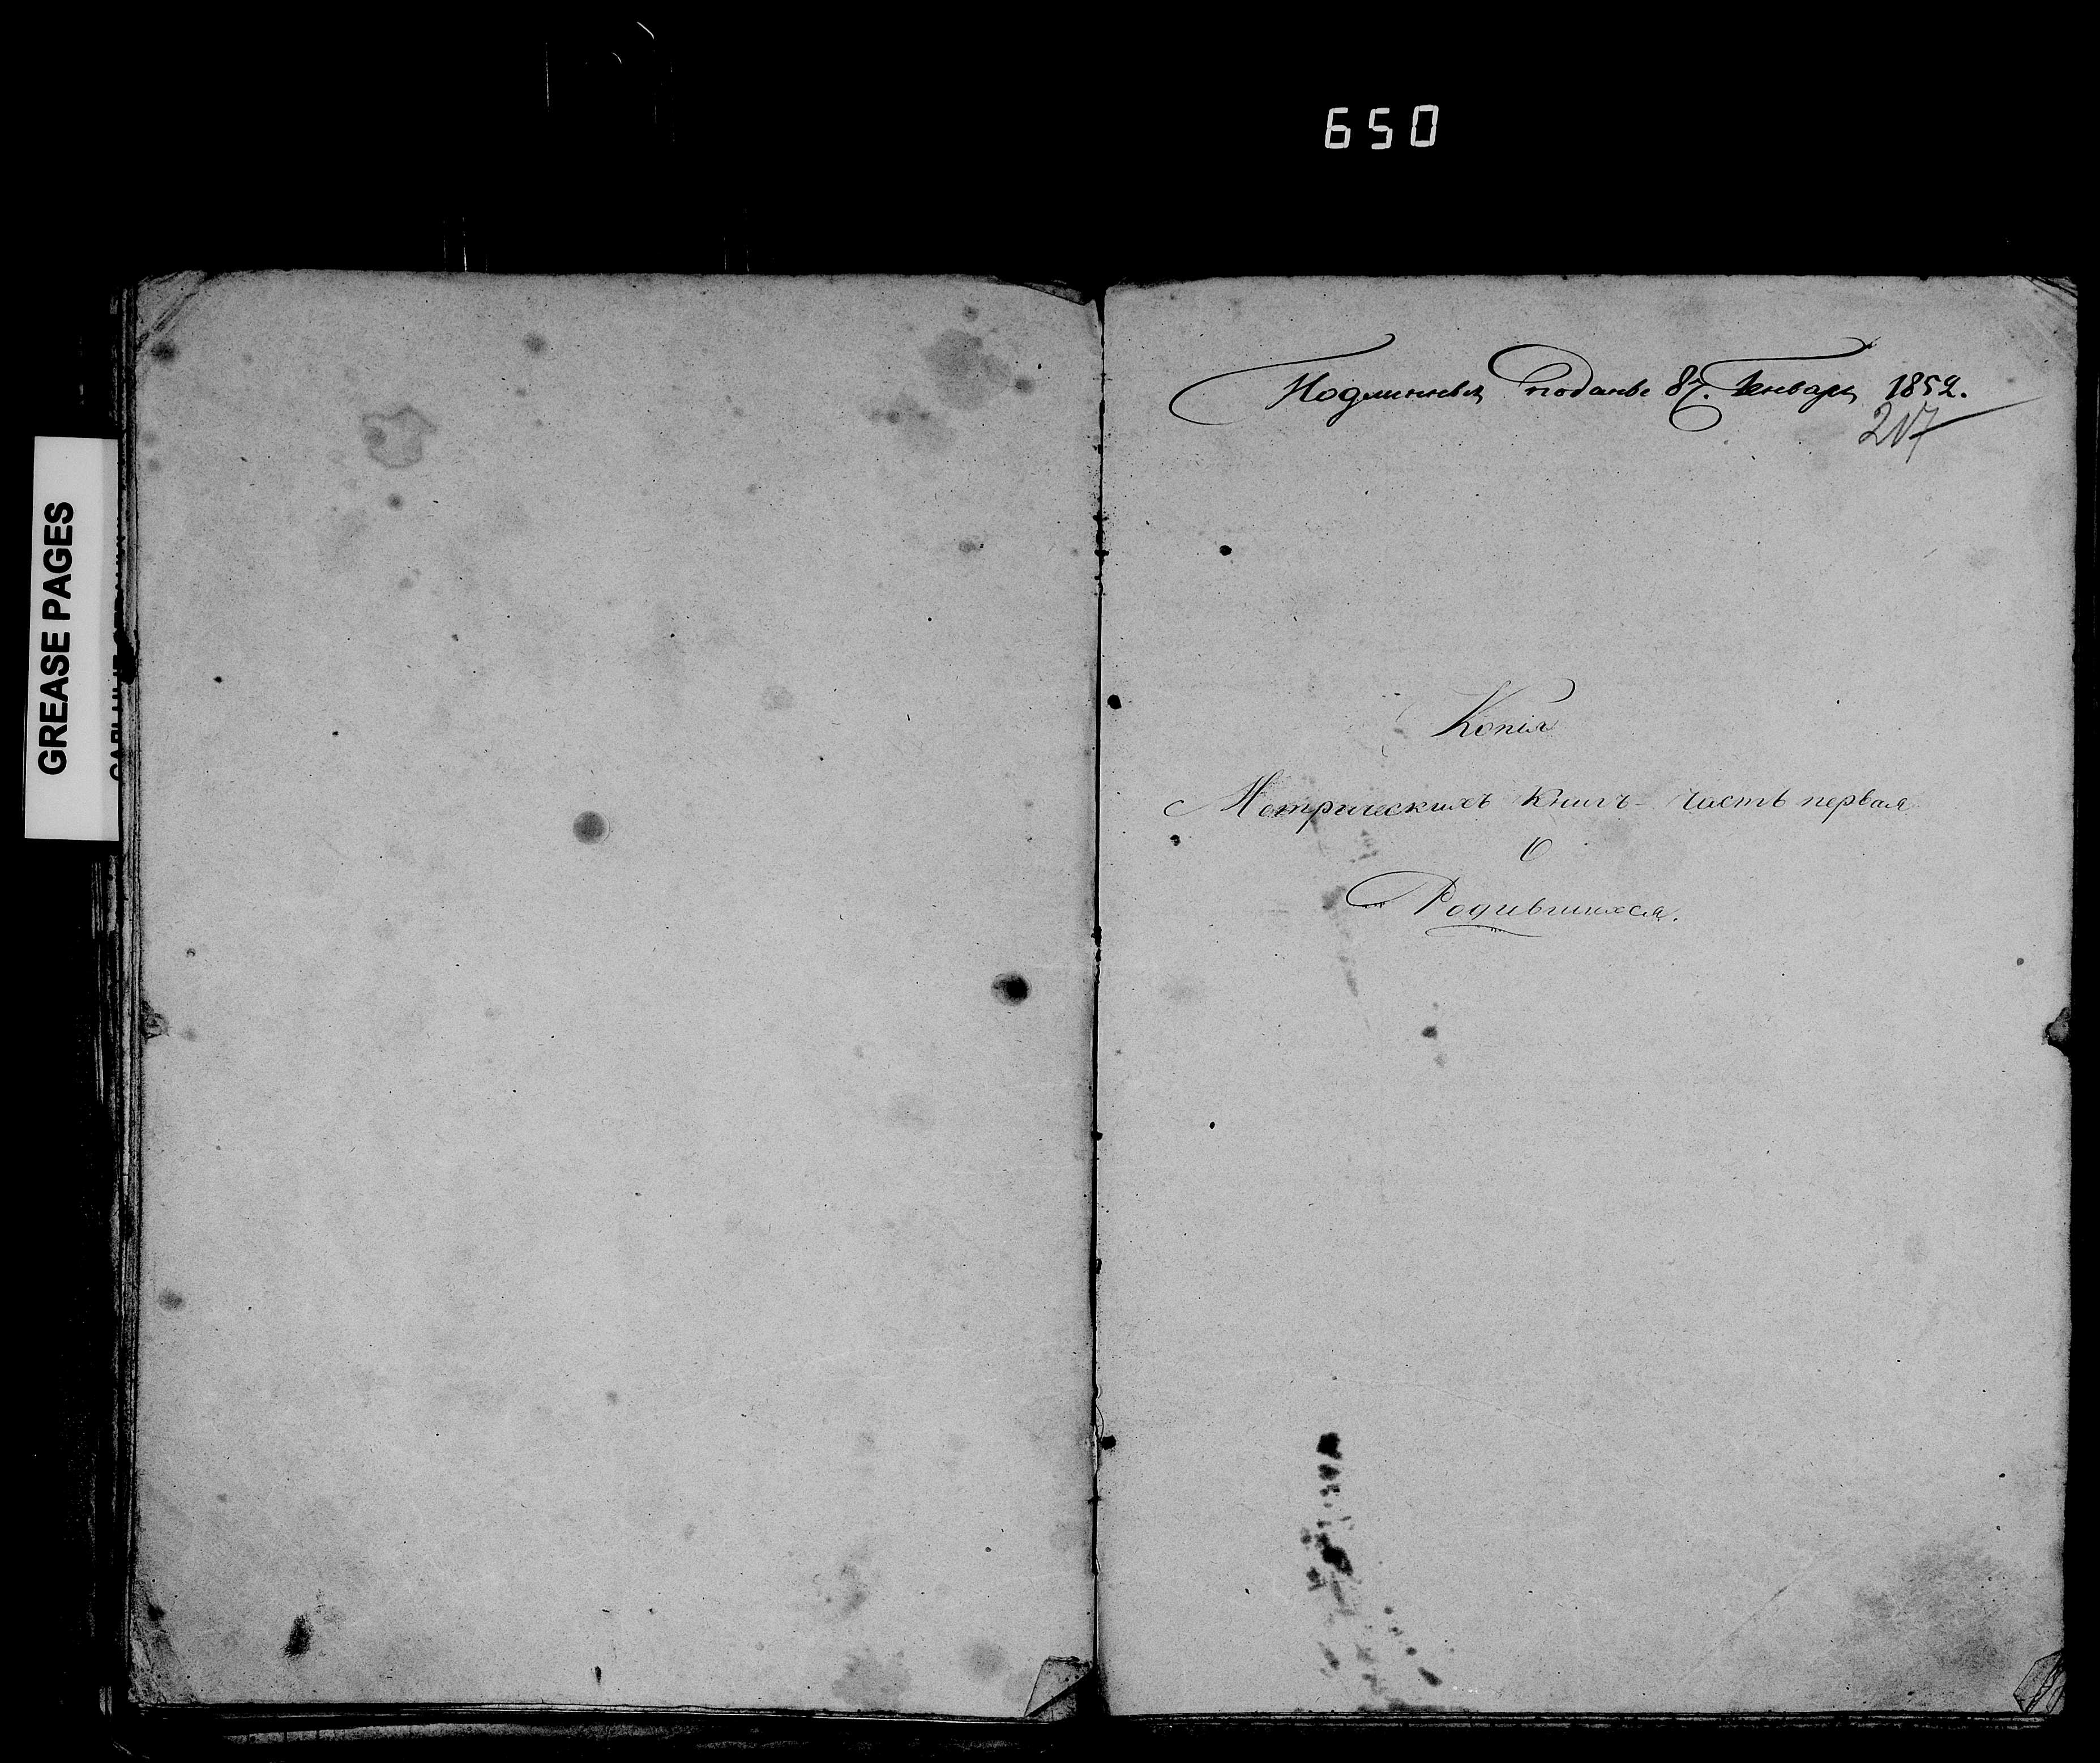 650
GREASE PAGES
Подлинныя поданы 8. Генваря 1852.
217
Копія
Метрическихъ Книгъ - Часть первая
О
Родившихся.